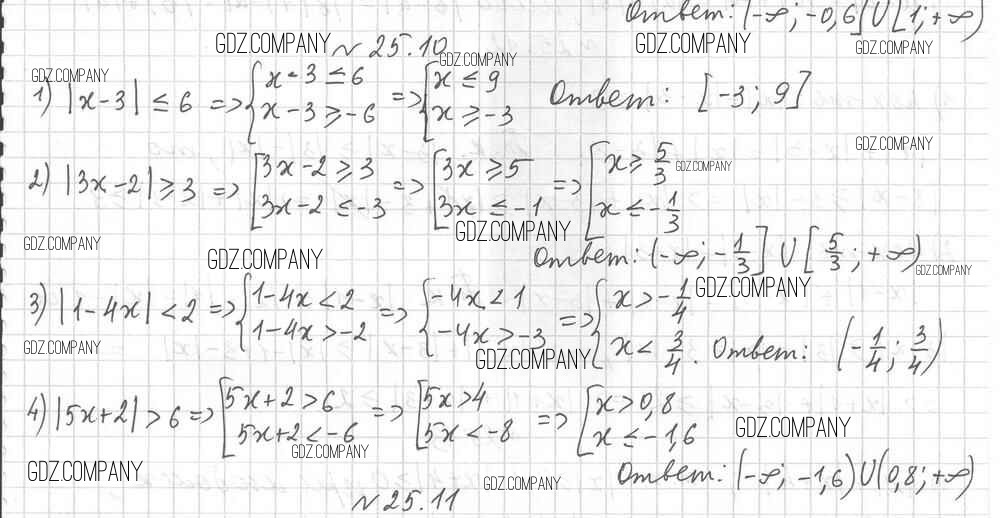 Ответ: (-∞; -0,6] ∪ [1; +∞)
GDZ.COMPANY № 25.10 GDZ.COMPANY GDZ.COMPANY
GDZ.COMPANY GDZ.COMPANY
1) |x-3| ≤ 6 => { x-3 ≤ 6 ; x-3 ≥ -6 => { x ≤ 9 ; x ≥ -3 Ответ: [-3; 9]
GDZ.COMPANY
2) |3x-2| ≥ 3 => [ 3x-2 ≥ 3 ; 3x-2 ≤ -3 => [ 3x ≥ 5 ; 3x ≤ -1 => [ x ≥ 5/3 ; x ≤ -1/3
GDZ.COMPANY
GDZ.COMPANY GDZ.COMPANY
Ответ: (-∞; -1/3] ∪ [5/3; +∞)
GDZ.COMPANY GDZ.COMPANY GDZ.COMPANY
3) |1-4x| < 2 => { 1-4x < 2 ; 1-4x > -2 => { -4x < 1 ; -4x > -3 => { x > -1/4 ; x < 3/4 . Ответ: (-1/4; 3/4)
GDZ.COMPANY GDZ.COMPANY
4) |5x+2| > 6 => [ 5x+2 > 6 ; 5x+2 < -6 => [ 5x > 4 ; 5x < -8 => [ x > 0,8 ; x ≤ -1,6
GDZ.COMPANY GDZ.COMPANY
Ответ: (-∞; -1,6) ∪ (0,8; +∞)
GDZ.COMPANY GDZ.COMPANY
№ 25.11